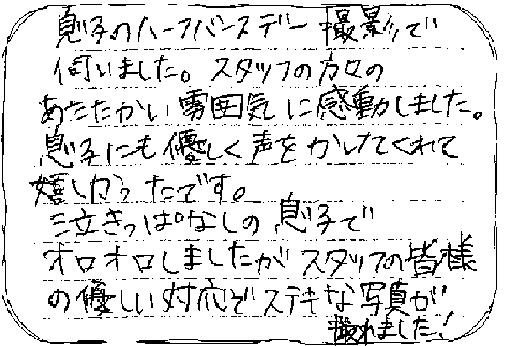 息子のハーフバースデー撮影で
伺いました。スタッフの方々の
あたたかい雰囲気に感動しました。
息子にも優しく声をかけてくれて
嬉しかったです。
泣きっぱなしの息子で
オロオロしましたがスタッフの皆様
の優しい対応でステキな写真が
撮れました!